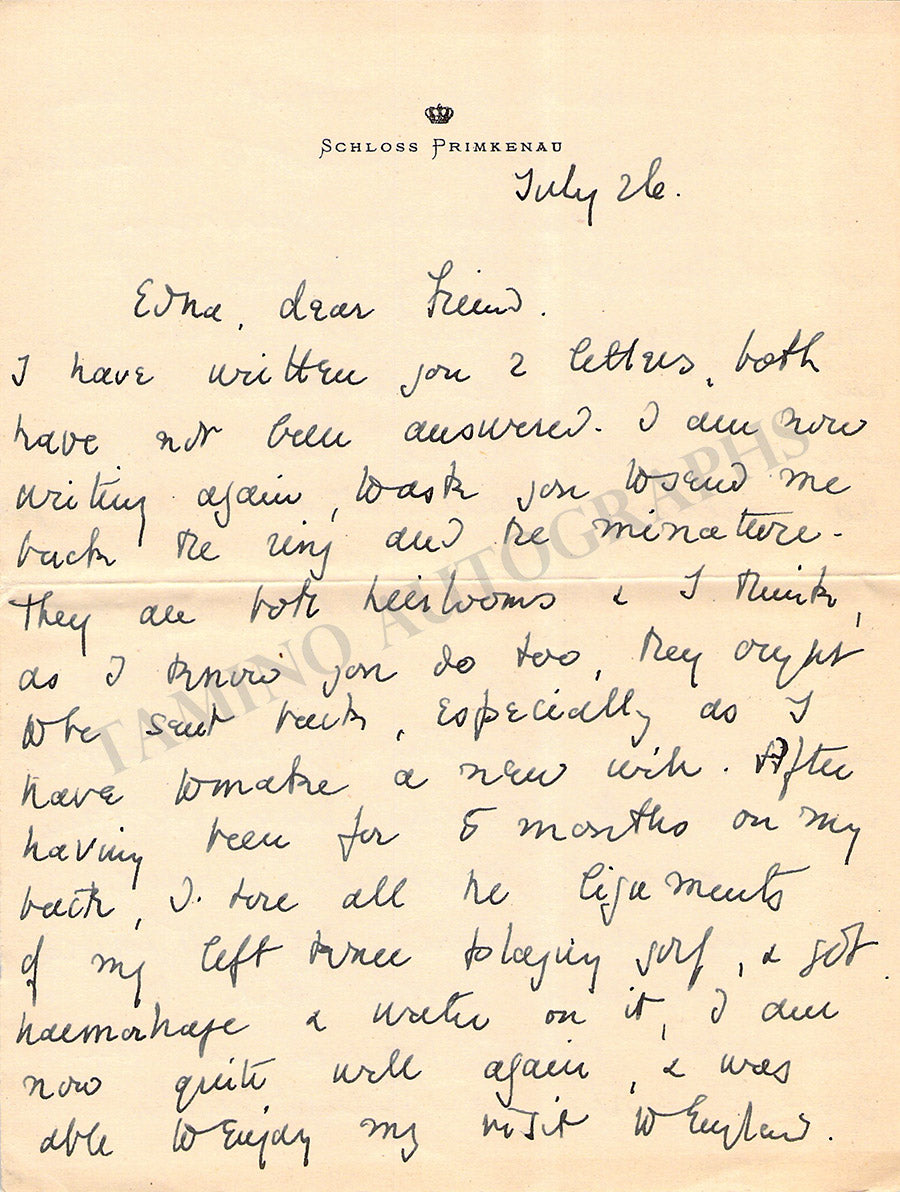 SCHLOSS PRIMKENAU
July 26.
Edna, dear Friend.
I have written you 2 letters, both
have not been answered. I am now
writing again, to ask you to send me
back the ring and the minature.
They are both heirlooms & I think,
as I know you do too, they ought
to be sent back, especially as I
have to make a new will. After
having been for 5 months on my
back, I tore all the ligaments
of my left knee playing golf, & got
haemorhage & water on it, I am
now quite well again, & was
able to enjoy my visit to England.
TAMINO AUTOGRAPHS